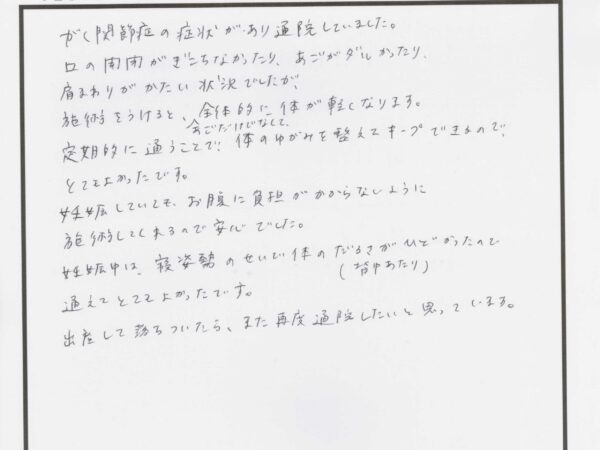 がく関節症の症状があり通院していました。
口の開閉がぎこちなかったり、あごがダルかったり、
肩まわりがかたい状況でしたが、
施術をうけると、全体的に体が軽くなります。
あごだけでなくて、
定期的に通うことで、体のゆがみを整えてキープできるので、
とてもよかったです。
妊娠していても、お腹に負担がかからないように
施術してくれるので安心でした。
妊娠中は、寝姿勢のせいで体のだるさがひどかったので
(背中あたり)
通えてとてもよかったです。
出産して落ちついたら、また再度通院したいと思っています。